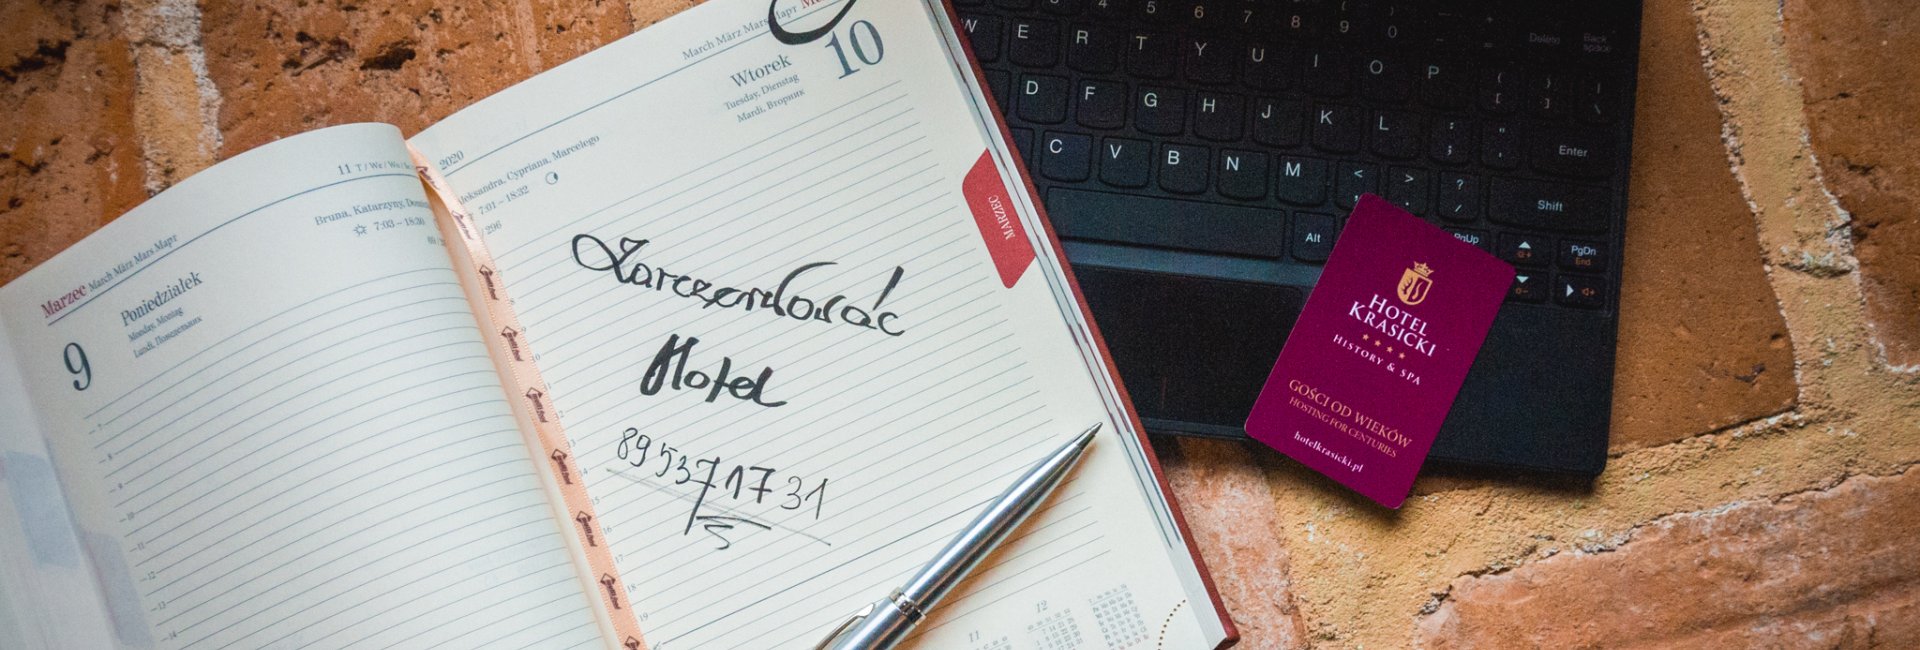 Marzec March März Mars Март
9
Poniedziałek
Monday, Montag
Lundi, Понедельник
11
Bruna, Katarzyny,
7:03 – 18:30
March März Mars Март
10
Wtorek
Tuesday, Dienstag
Mardi, Вторник
2020
Aleksandra, Cypriana, Marcelego
7:01 – 18:32
296
MARZEC
Zarezerwować
Hotel
89 537 17 31
11
12
4 5 6 7 8 9 0
W E R T Y U I O P
Delete
Back space
D F G H J K L
Enter
C V B N M
Shift
Alt
PgUp
PgDn
End
HOTEL
KRASICKI
HISTORY & SPA
GOŚCI OD WIEKÓW
HOSTING FOR CENTURIES
hotelkrasicki.pl